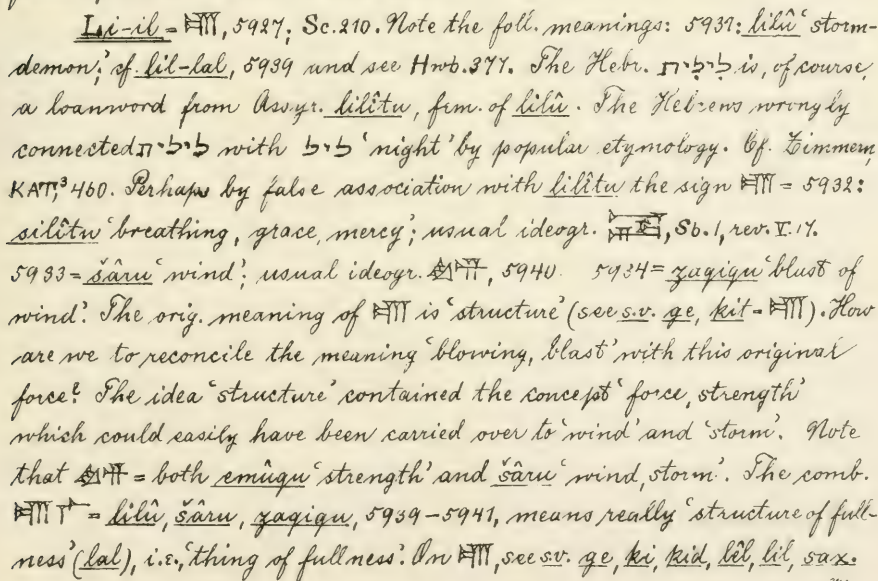 Li-il = 𒆤, 5927; Sc. 210. Note the foll. meanings: 5931: lilû 'storm-
demon', cf. lil-lal, 5939 and see Hwb. 377. The Hebr. לילית is, of course,
a loanword from Assyr. lilîtu, fem. of lilû. The Hebrews wrongly
connected לילית with ליל 'night' by popular etymology. Cf. Zimmern,
KAT,³ 460. Perhaps by false association with lilîtu the sign 𒆤 = 5932:
silîtu 'breathing, grace, mercy'; usual ideogr. Sb. 1, rev. V. 17.
5933 = šâru 'wind'; usual ideogr. 5940. 5934 = zaqiqu 'blast of
wind'. The orig. meaning of 𒆤 is 'structure' (see s.v. ge, kit = 𒆤). How
are we to reconcile the meaning 'blowing, blast' with this original
force? The idea 'structure' contained the concept 'force, strength'
which could easily have been carried over to 'wind' and 'storm'. Note
that = both emûqu 'strength' and šâru 'wind, storm'. The comb.
𒆤 𒇲 = lilû, šâru, zaqiqu, 5939-5941, means really 'structure of full-
ness' (lal), i.e., 'thing of fullness'. On 𒆤, see s.v. ge, ki, kid, lêl, lil, sax.